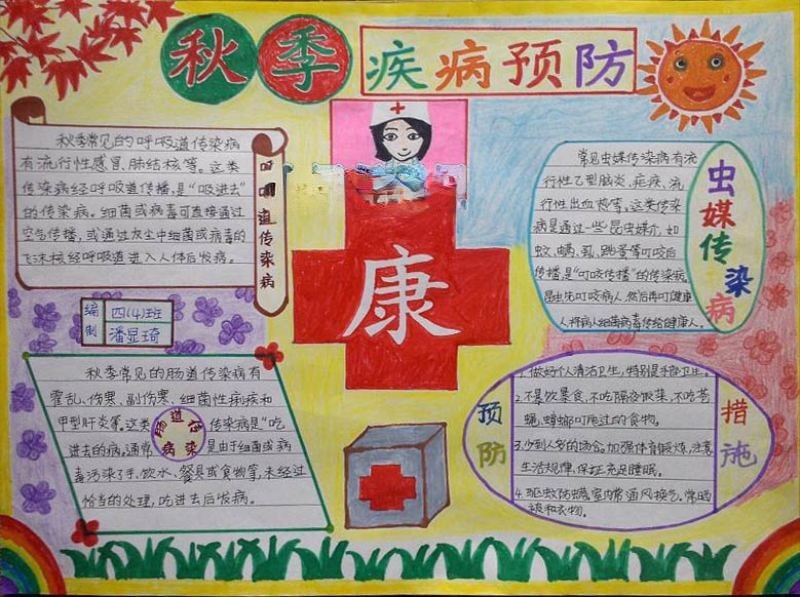 秋季疾病预防
秋季常见的呼吸道传染病
有流行性感冒、肺结核等。这类
传染病经呼吸道传播,是“吸进去”
的传染病。细菌或病毒可直接通过
空气传播,或通过灰尘中细菌或病毒的
飞沫核经呼吸道进入人体后发病。
呼吸道传染病
编制
四(4)班
潘显琦
康
常见虫媒传染病有流
行性乙型脑炎、疟疾、流
行性出血热等。这类传染
病是通过一些昆虫媒介,如
蚊、螨、虱、跳蚤等叮咬后
传播,是“叮咬传播”的传染病,
昆虫先叮咬病人,然后再叮健康
人,将病人细菌病毒传经健康人。
虫媒传染病
秋季常见的肠道传染病有
霍乱、伤寒、副伤寒、细菌性痢疾和
甲型肝炎等。这类传染病是“吃
进去的病”,通常是由于细菌或病
毒污染了手、饮水、餐具或食物等,未经过
恰当的处理,吃进去后发病。
肠道传染病
预防
1.做好个人清洁卫生,特别是手部卫生。
2.不暴饮暴食,不吃隔夜饭菜,不吃苍
蝇、蟑螂叮爬过的食物。
3.少到人多的场合。加强体育锻炼,注意
生活规律,保证充足睡眠。
4.驱蚊防螨,室内常通风换气,常晒
被和衣物。
措施